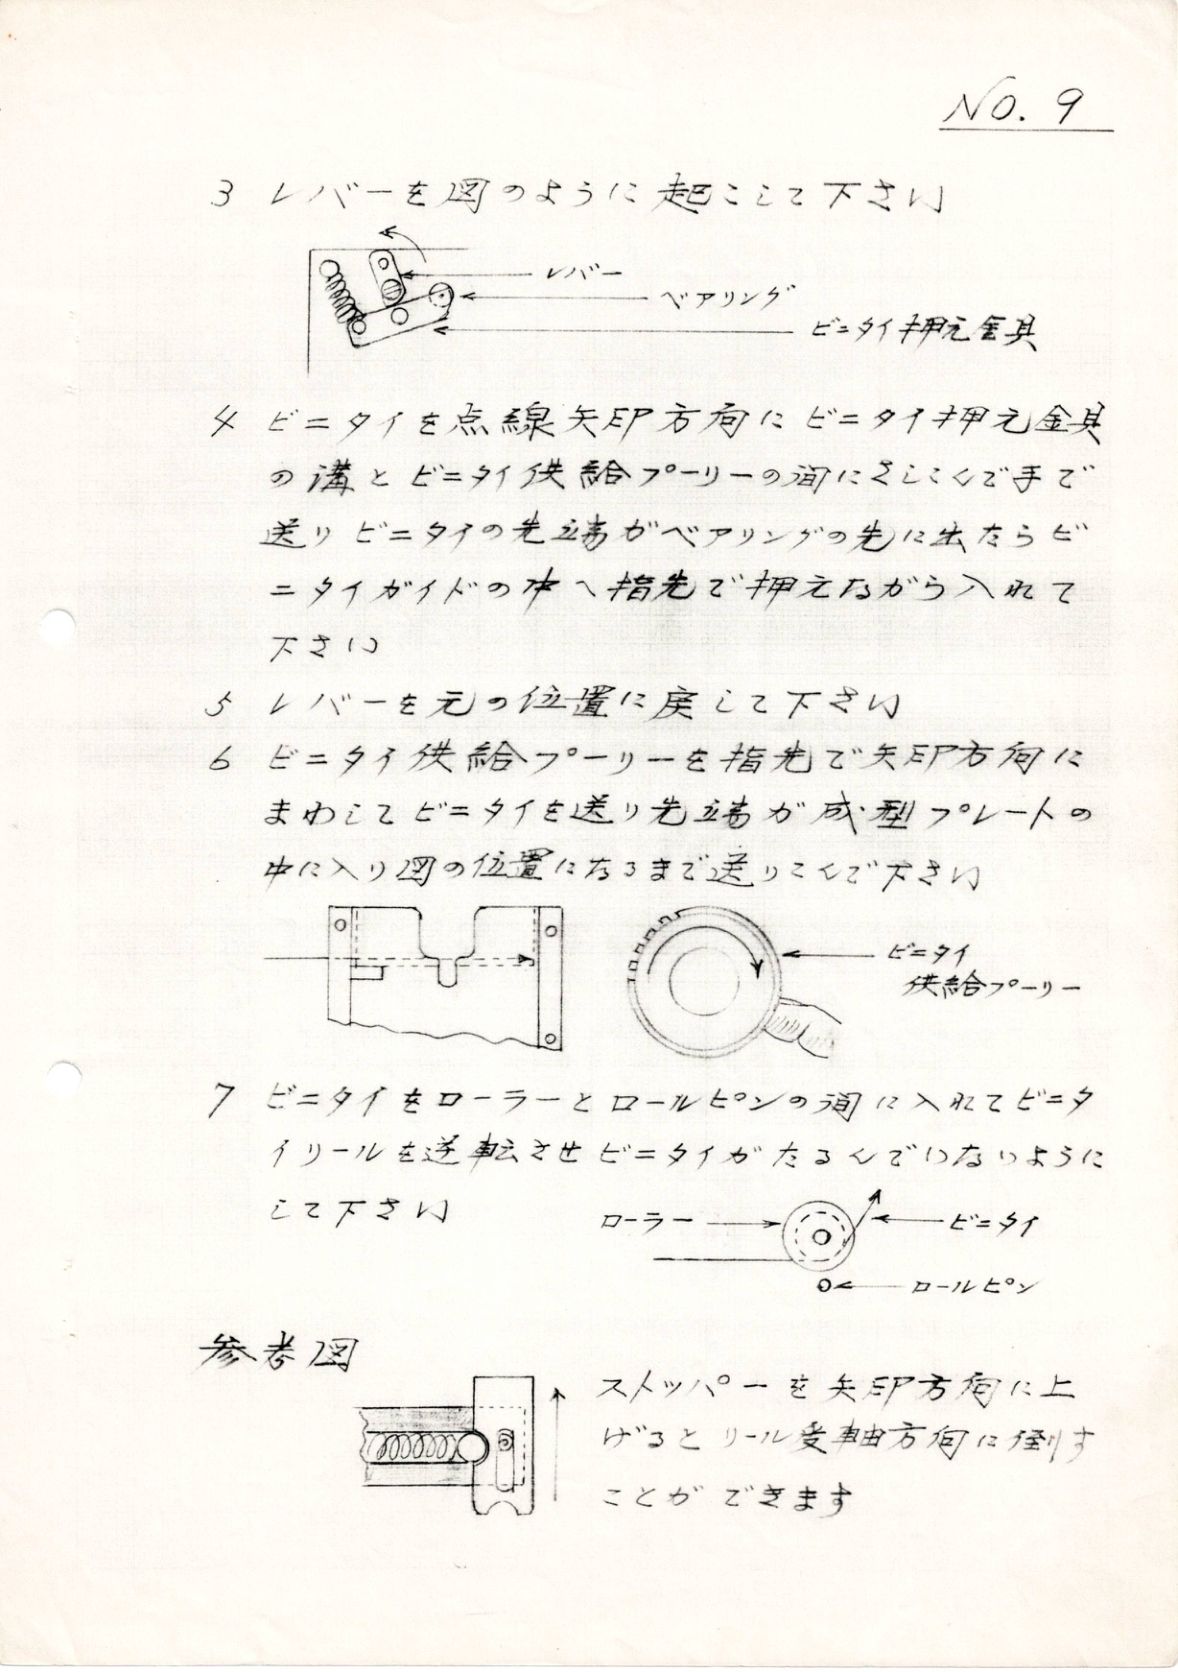 NO. 9
3 レバーを図のように起こして下さい
レバー
ベアリング
ビニタイ押元金具
4 ビニタイを点線矢印方向にビニタイ押元金具
の溝とビニタイ供給プーリーの間にさしこんで手で
送りビニタイの先端がベアリングの先に出たらビ
ニタイガイドの中へ指先で押えながら入れて
下さい
5 レバーを元の位置に戻して下さい
6 ビニタイ供給プーリーを指先で矢印方向に
まわしてビニタイを送り先端が成型プレートの
中に入り図の位置になるまで送りこんで下さい
ビニタイ
供給プーリー
7 ビニタイをローラーとロールピンの間に入れてビニタ
イリールを逆転させビニタイがたるんでいないように
して下さい
ローラー
ビニタイ
ロールピン
参考図
ストッパーを矢印方向に上
げるとリール受軸方向に倒す
ことができます